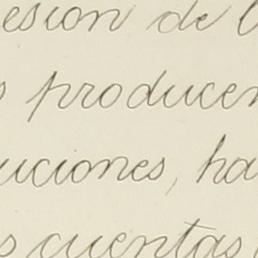 esion de l
s producen
uciones, ha
s cuentas